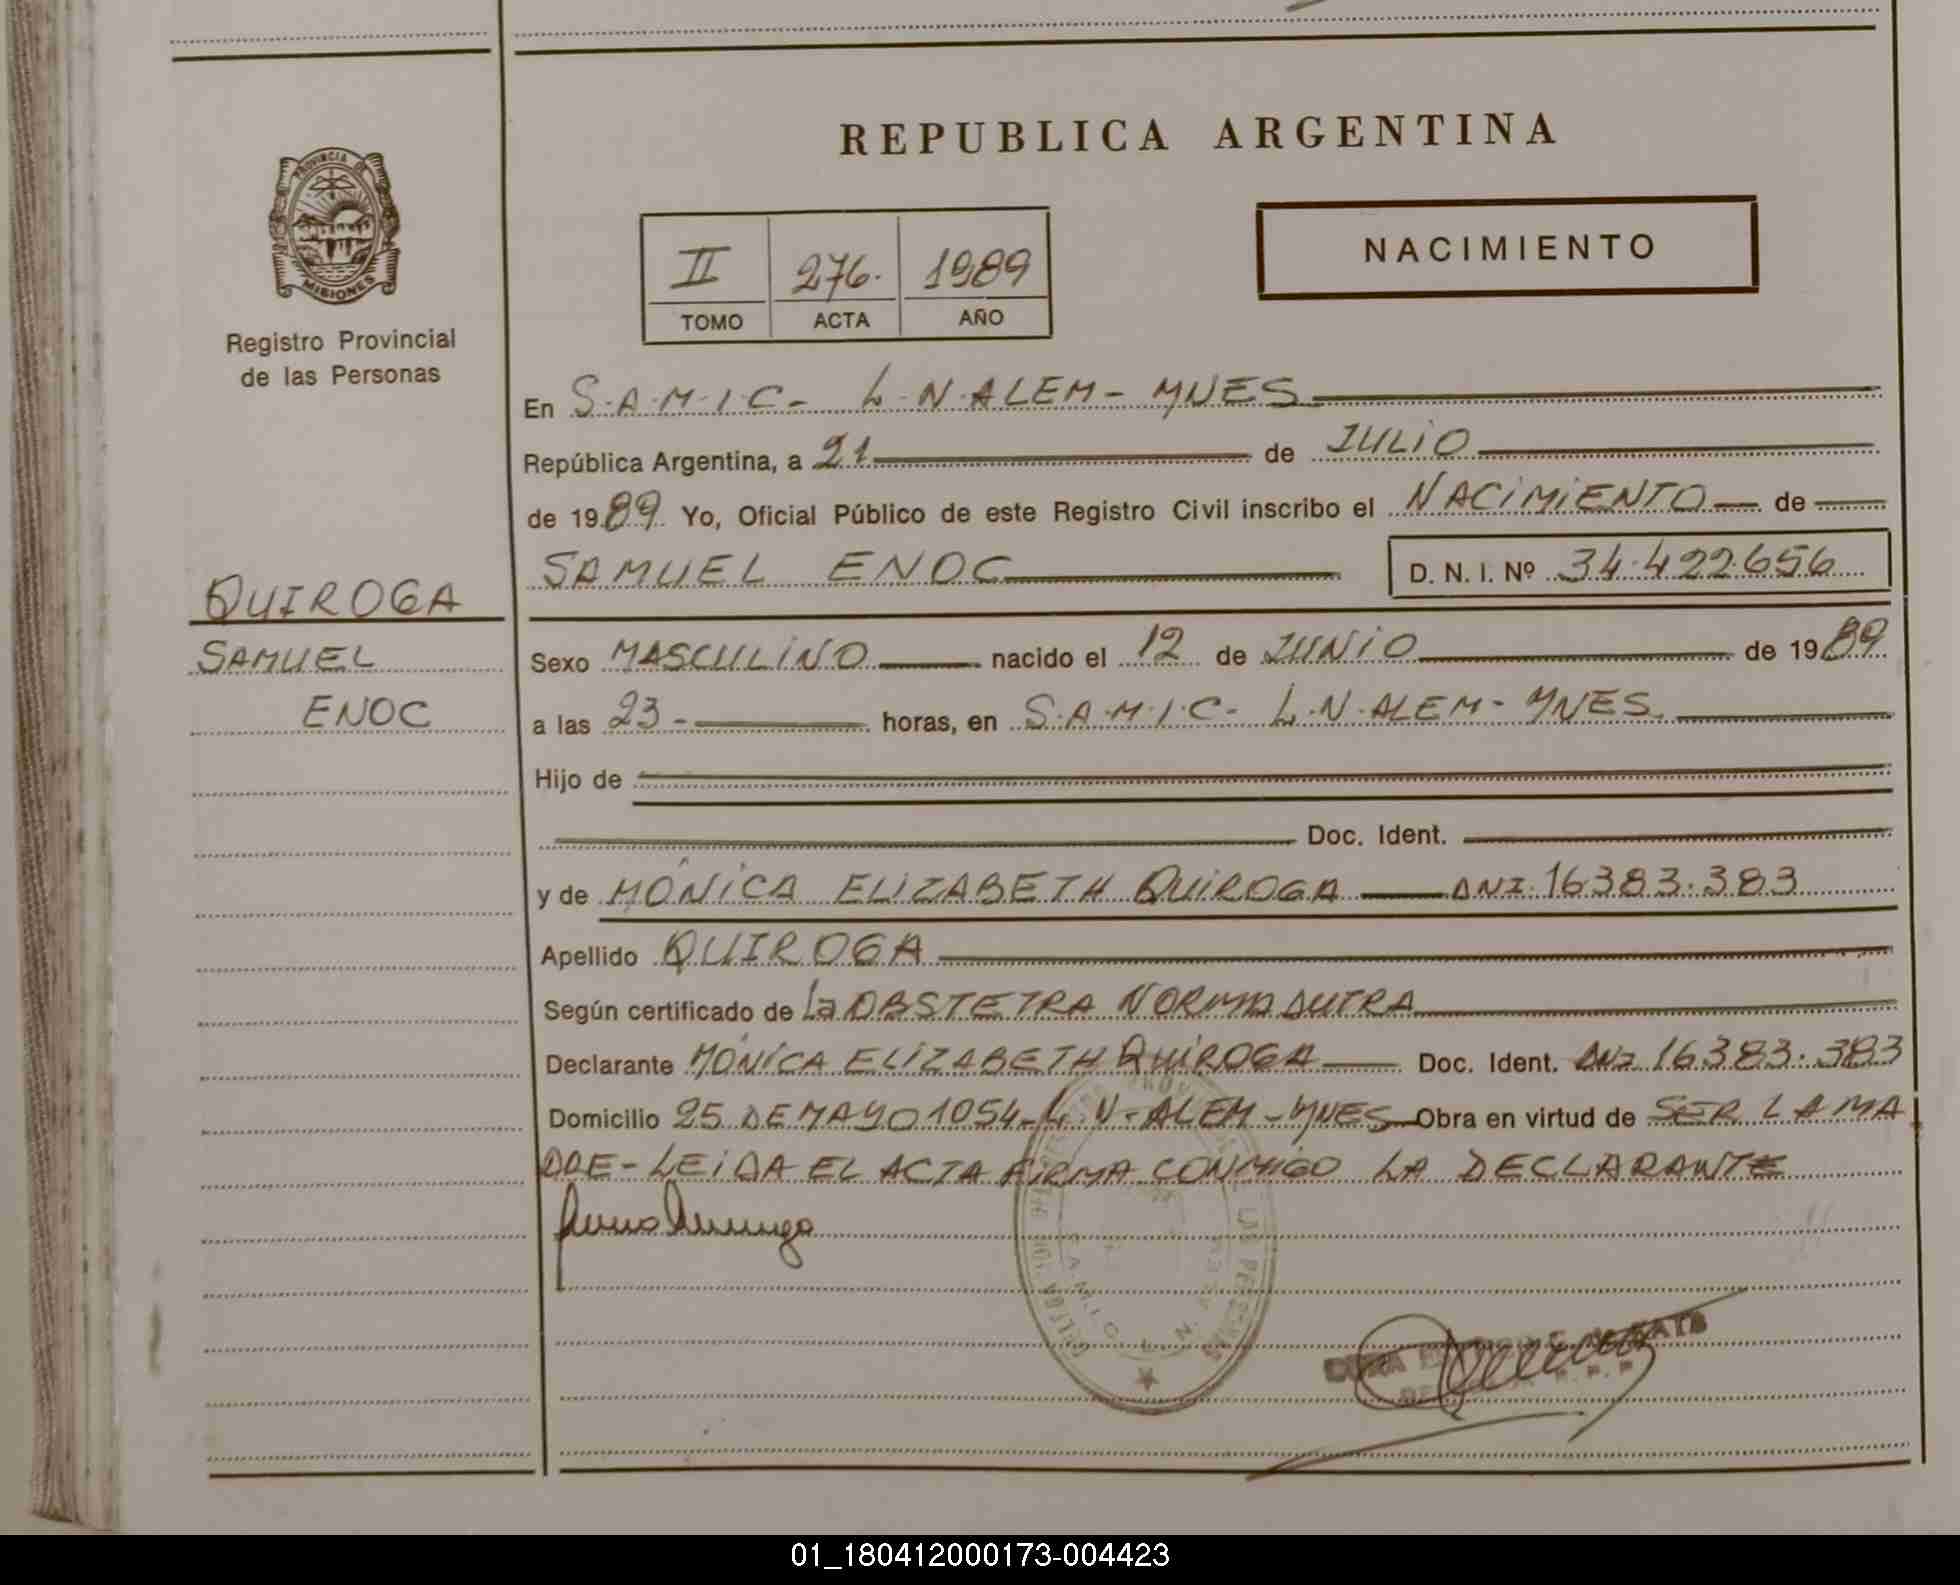 REPUBLICA ARGENTINA
PROVINCIA DE
MISIONES
Registro Provincial
de las Personas
II 276. 1989
TOMO ACTA AÑO
NACIMIENTO
En S.A.M.I.C- L.N.ALEM- MNES
República Argentina, a 21 de JULIO
de 1989 Yo, Oficial Público de este Registro Civil inscribo el NACIMIENTO de
SAMUEL ENOC D. N. I. Nº 34.422.656
QUIROGA
SAMUEL
ENOC
Sexo MASCULINO nacido el 12 de JUNIO de 1989
a las 23- horas, en S.A.M.I.C- L.N.ALEM- MNES.
Hijo de
Doc. Ident.
y de MÓNICA ELIZABETH QUIROGA DNI. 16383.383
Apellido QUIROGA
Según certificado de La OBSTETRA NORMA DUTRA
Declarante MÓNICA ELIZABETH QUIROGA Doc. Ident. DNI 16383.383
Domicilio 25 DE MAYO 1054-L.N-ALEM-MNES Obra en virtud de SER LA MA
DRE-LEIDA EL ACTA FIRMA CONMIGO LA DECLARANTE
LAS PERSONAS
S.A.M.I.C. L.N. ALEM
01_180412000173-004423